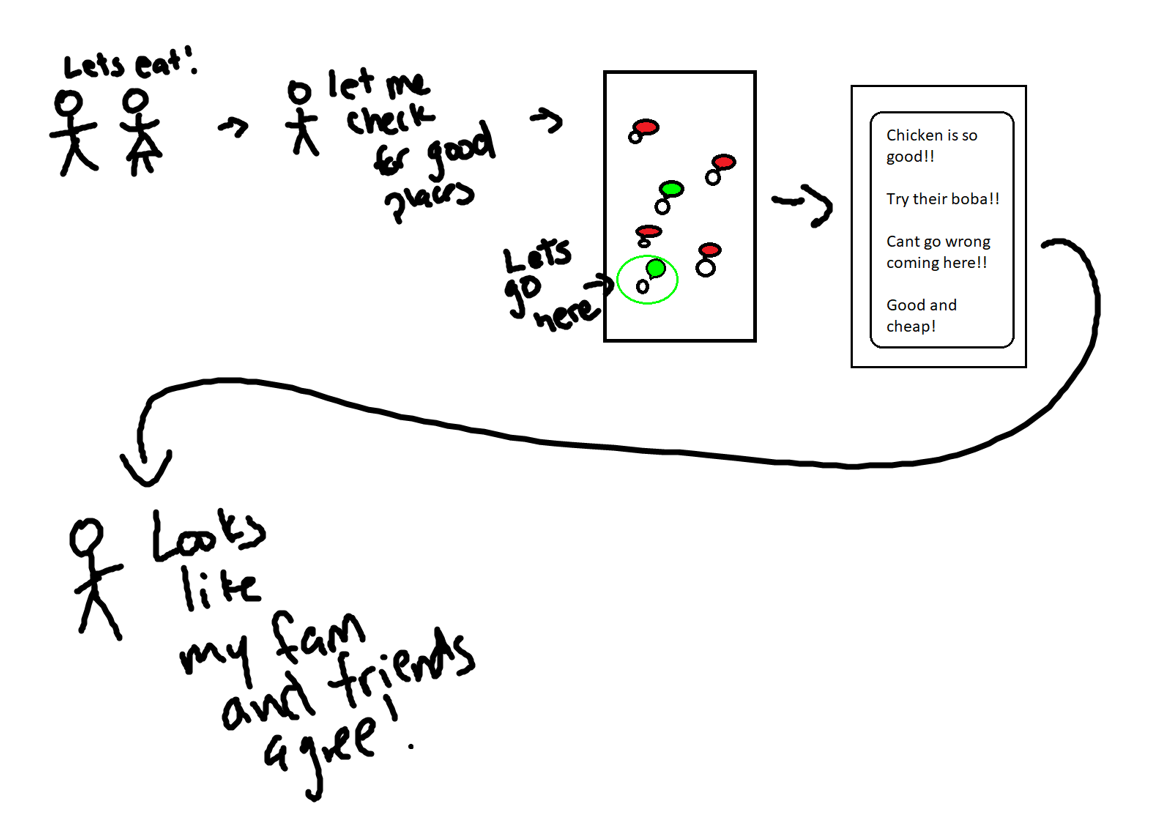 Lets eat!
let me
check
for good
places
Lets
go
here
Chicken is so
good!!
Try their boba!!
Cant go wrong
coming here!!
Good and
cheap!
Looks
like
my fam
and friends
agree!